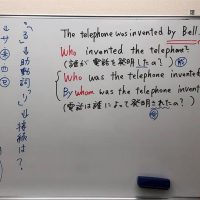 The telephone was invented by Bell.
Who invented the telephone?
(誰が電話を発明したの?)
Who was the telephone invented
By whom was the telephone invented
(電話は誰によって発明されたの?)
「る」も助動詞「り」も接続は?